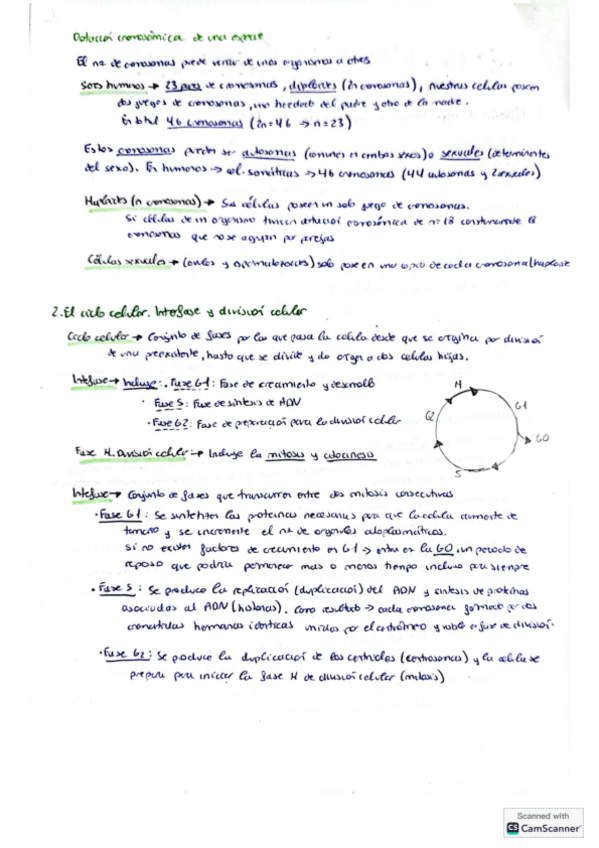 Dotación cromosómica de una especie
El nº de cromosomas puede variar de unos organismos a otros
Seres humanos → 23 pares de cromosomas, diploides (2n cromosomas), nuestras celulas poseen
dos juegos de cromosomas, uno heredado del padre y otro de la madre.
En total 46 cromosomas (2n=46 → n=23)
Estos cromosomas pueden ser autosomas (comunes en ambos sexos) o sexuales (determinantes
del sexo). En humanos → cel. somáticas → 46 cromosomas (44 autosomas y 2 sexuales)
Haploides (n cromosomas) → Sus células poseen un solo juego de cromosomas.
Si células de un organismo tienen dotación cromosómica de n=18
cromosomas que no se agrupan por parejas
Células sexuales → (óvulos y espermatozoides) solo poseen una copia de cada cromosoma (haploide
2. El ciclo celular. Interfase y división celular
Ciclo celular → Conjunto de fases por las que pasa la celula desde que se origina por división
de una preexistente, hasta que se divide y da origen a dos celulas hijas.
Interfase → Incluye: · Fase G1: Fase de crecimiento y desarrollo
· Fase S: Fase de sintesis de ADN
· Fase G2: Fase de preparación para la división celular
M
G1
G2
G0
S
Fase M. División celular → Incluye la mitosis y citocinesis
Interfase → Conjunto de fases que transcurren entre dos mitosis consecutivas
· Fase G1: Se sintetizan las proteinas necesarias para que la celula aumente de
tamaño y se incremente el nº de organulos citoplasmáticos.
Si no existen factores de crecimiento en G1 → entra en la G0, un periodo de
reposo que podría permanecer mas o menos tiempo incluso para siempre
· Fase S: Se produce la replicación (duplicación) del ADN y sintesis de proteinas
asociadas al ADN (histonas). Como resultado → cada cromosoma formado por dos
cromatidas hermanas identicas unidas por el centrómero y visible en fase de división.
· Fase G2: Se produce la duplicación de los centriolos (centrosomas) y la célula se
prepara para iniciar la fase M de división celular (mitosis)
Scanned with
CS CamScanner